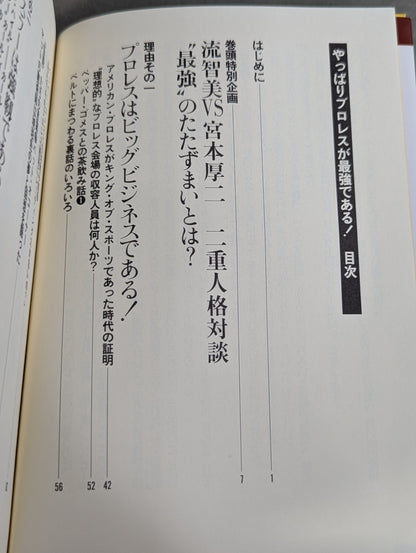 やっぱりプロレスが最強である! 目次
はじめに 1
巻頭特別企画
流智美VS宮本厚二 二重人格対談 7
“最強”のたたずまいとは?
理由その一
プロレスはビッグビジネスである!
アメリカン・プロレスがキング・オブ・スポーツであった時代の証明 42
“理想的”なプロレス会場の収容人員は何人か? 52
ペッパー・ゴメスとの茶飲み話❶
ベルトにまつわる裏話のいろいろ 56